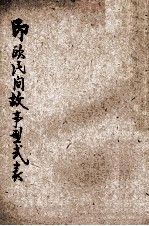 印欧民间故事型式表